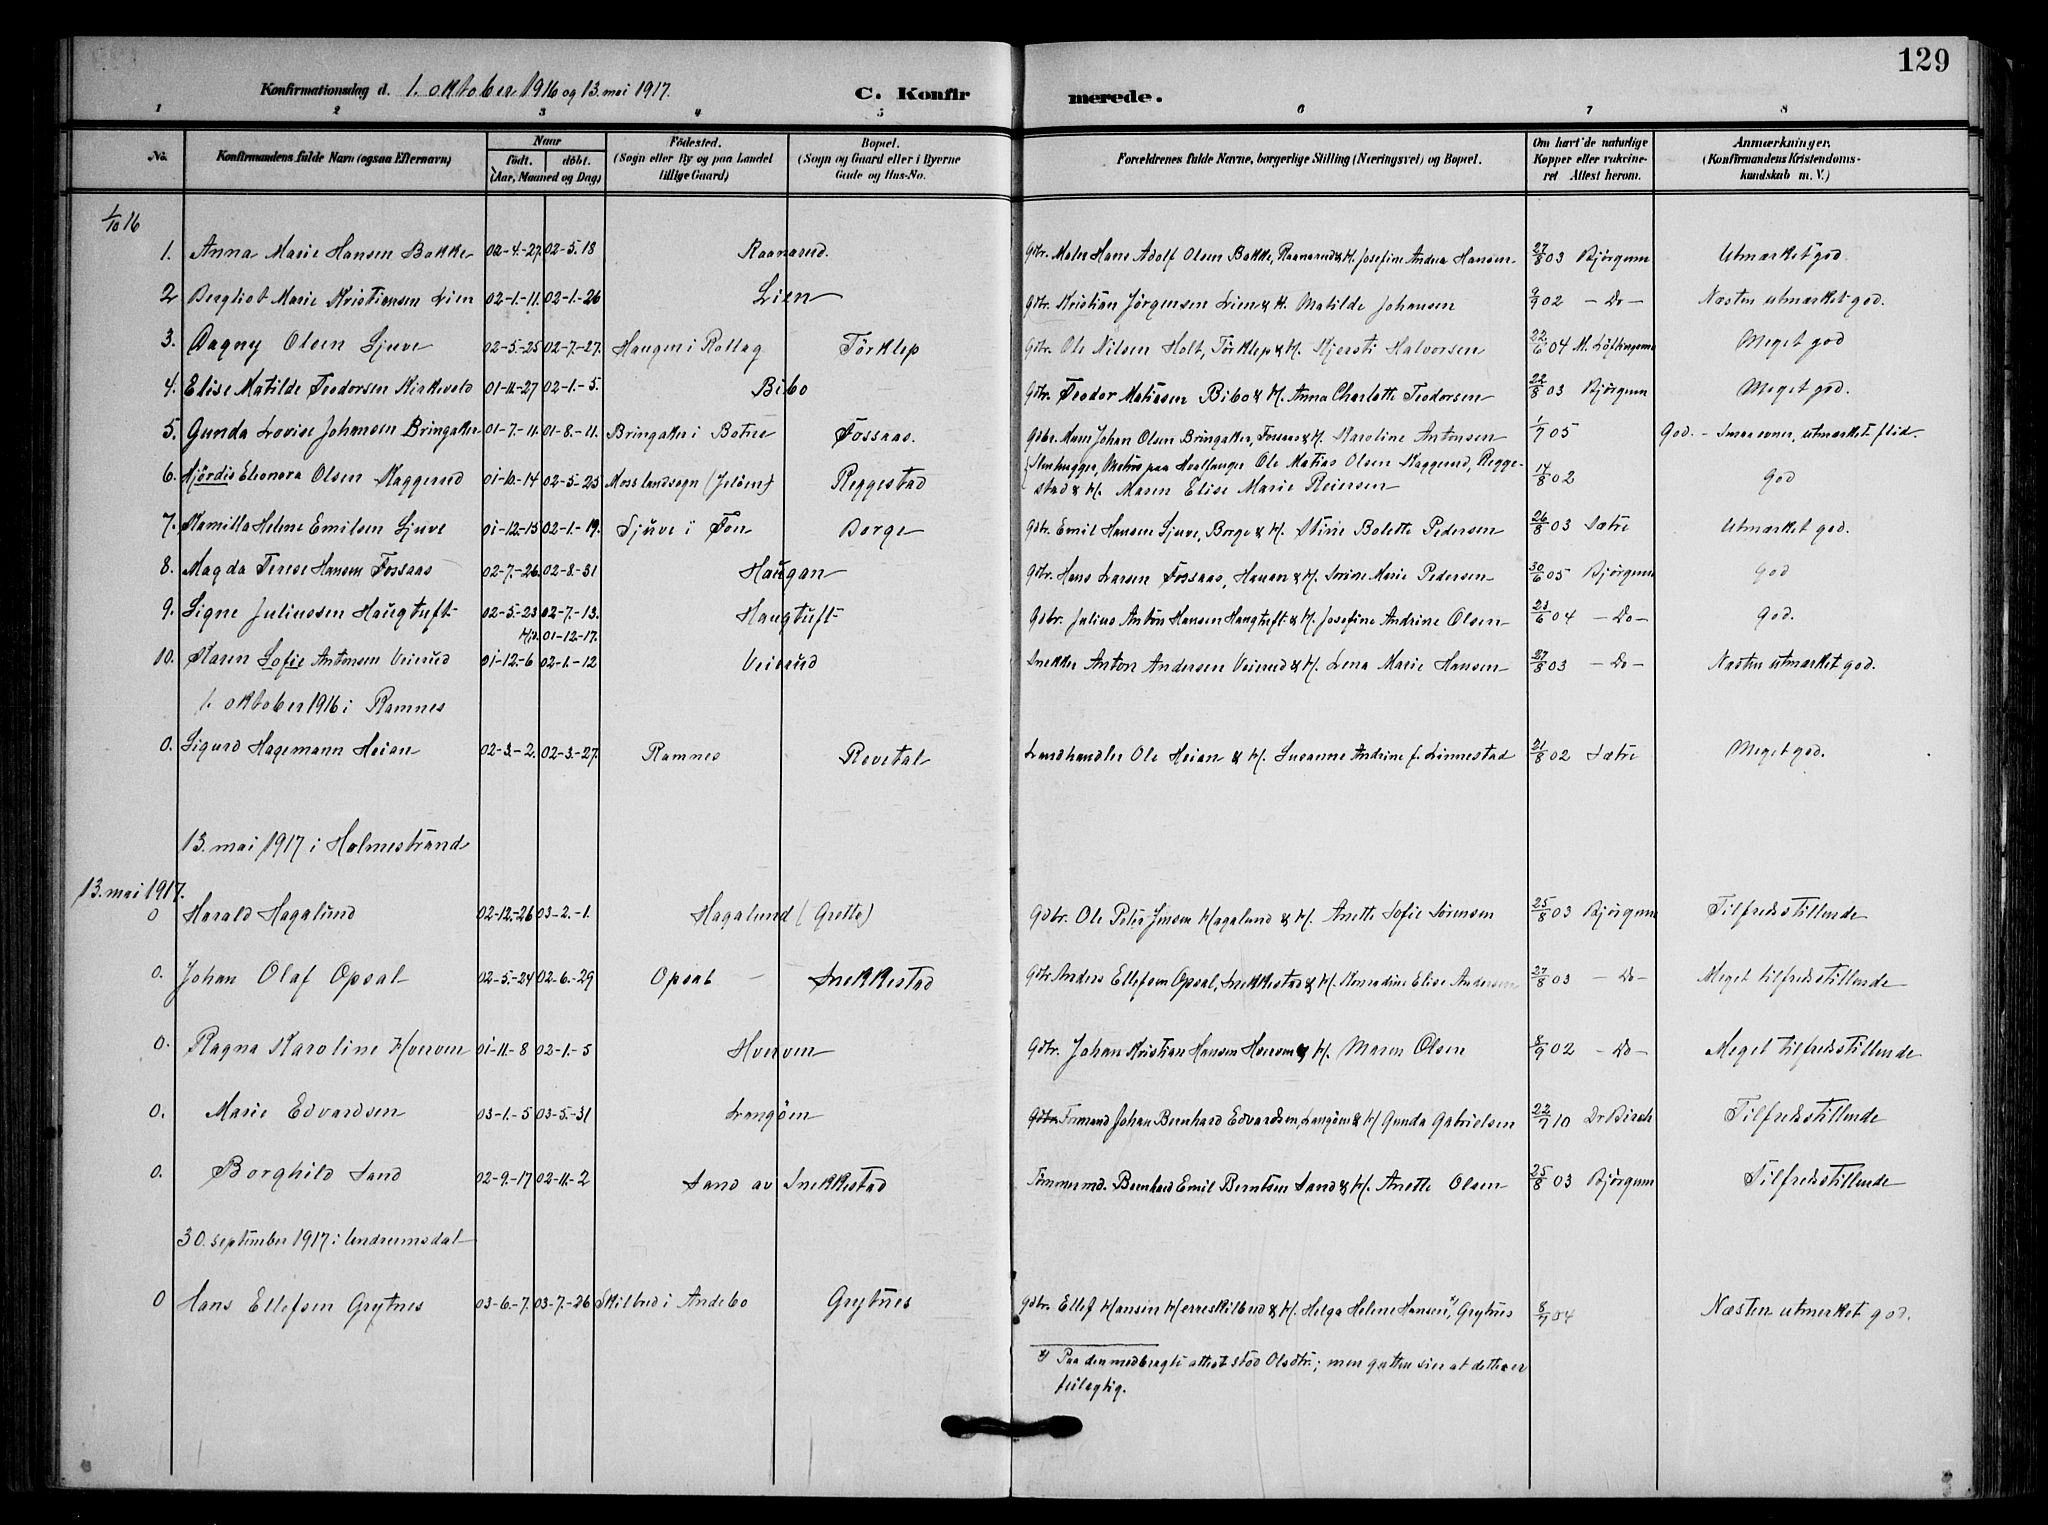 129
Konfirmationsdag d. 1. oktober 1916 og 13. mai 1917. C. Konfirmerede.
1 2 3 4 5 6 7 8
No. Konfirmandens fulde Navn (ogsaa Efternavn) Naar født. døbt. (Aar, Maaned og Dag) Fødested. (Sogn eller By og paa Landet tillige Gaard) Bopæl. (Sogn og Gaard eller i Byerne Gade og Hus-No. Forældrenes fulde Navne, borgerlige Stilling (Næringsvei) og Bopæl. Om havt de naturlige Kopper eller vakcineret Attest herom. Anmærkninger. (Konfirmandens Kristendomskundskab m. V.)
1/10 16
1. Anna Marie Hansen Bakke 02-4-27. 02-5.18 Raanarud. Gbr. Maler Hans Adolf Olsen Bakke, Raanarud & H. Josefine Andrea Hansen 27/8 03 Bjørgum Utmærket god.
2 Bergliot Marie Kristiansen Lien 02-1-11. 02-1-26 Lien Gbr. Kristian Jørgensen Lien & H. Matilde Johansen 9/9 02 - Do - Næsten utmærket god.
3. Dagny Olsen Ljuve 02-5-25 02-7-27. Haugen i Rollag Tørklep Gbr. Ole Nilsen Holt, Tørklep & H. Kjersti Halvorsen 22/6 04 Meget god
4. Elise Matilde Teodorsen Kirkevold 01-11-27 02-1-5. Bibo Gbr. Teodor Matiasen Bibo & H. Anna Charlotte Teodorsen 22/8 03 Bjørgum Meget god.
5. Gunda Lovise Johansen Bringaker 01-7-11. 01-8-11. Bringaker i Botne Fossaas. Gdbr. Johan Olsen Bringaker, Fossaas & H. Karoline Antonsen 1/7 05 God. - Smaa evner, utmærket flid.
6. Hjørdis Eleonora Olsen Kaggerud 01-10-14 02-5-25 Moss landsogn (Jeløen) Reggestad Stenhugger, Matros paa Hvalfanger Ole Matias Olsen Kaggerud, Reggestad & H. Maren Elise Marie Reiersen 14/8 02 god
7. Kamilla Helene Emilsen Ljuve 01-12-15 02-1-19. Ljuve i Fon Borge Gbr. Emil Hansen Ljuve, Borge & H. Stine Bolette Pedersen 26/8 03 Sætre Utmærket god.
8. Magda Terese Hansen Fossaas 02-7-26. 02-8-31 Haugan Gbr. Hans Larsen Fossaas, Hauan & H. Sorine Marie Pedersen 30/6 05 Bjørgum god
9. Signe Juliussen Haugtuft 02-5-23 02-7-13. Haugtuft Gdbr. Julius Anton Hansen Haugtuft & H. Josefine Andrine Olsen 23/6 04 - Do - god.
Hjd. 01-12-17.
10. Karen Sofie Antonsen Veierud 01-12-6 02-1-12 Veierud Snekker Anton Andersen Veierud & H. Lena Marie Hansen 27/8 03 - Do - Næsten utmærket god.
1. oktober 1916 i Ramnes
0. Sigurd Hagemann Heian 02-3-2. 02-3-27. Ramnes Revetal Landhandler Ole Heian & H. Susanne Andrine f. Linnestad 21/8 02 Sætre Meget god.
13. mai 1917 i Holmestrand
13. mai 1917.
0 Harald Hagalund 02-12-26 03-2-1. Hagalund (Grette) Gdbr. Ole Peter Jensen Hagalund & H. Anette Sofie Sørensen 25/8 03 Bjørgum Tilfredsstillende
0. Johan Olaf Opsal 02-5-24 02-6-29 Opsal - Snekkestad Gbr. Anders Ellefsen Opsal, Snekkestad & H. Konradine Elise Andersen 27/8 03 - Do - Meget tilfredsstillende
0. Ragna Karoline Hverven 01-11-8 02-1-5 Hverven Gdbr. Johan Kristian Hansen Hverven & H. Maren Olsen 8/9 02 - Do - Meget tilfredsstillende
0. Marie Edvardsen 03-1-5 03-5-31 Langøen Formand Johan Bernhard Edvardsen, Langøen & H Gunda Gabrielsen 22/7 10 Tilfredsstillende
0. Borghild Sand 02-9-17 02-11-2 Sand av Snekkestad Tømmermd. Bernhard Emil Berntsen Sand & H. Anette Olsen 25/8 03 Bjørgum Tilfredsstillende
30. september 1917 i Undrumsdal
0 Hans Ellefsen Grytnes 03-6-7. 03-7-26 Skilbred i Andebo Grytnes Gdbr. Ellef Hansen Herreskilbred & H. Helga Helene Hansen x), Grytnes 8/7 04 Næsten utmerket god.
x) Paa den medbragte attest stod Olsdtr.; men gutten sier at dette er
feilagtig.